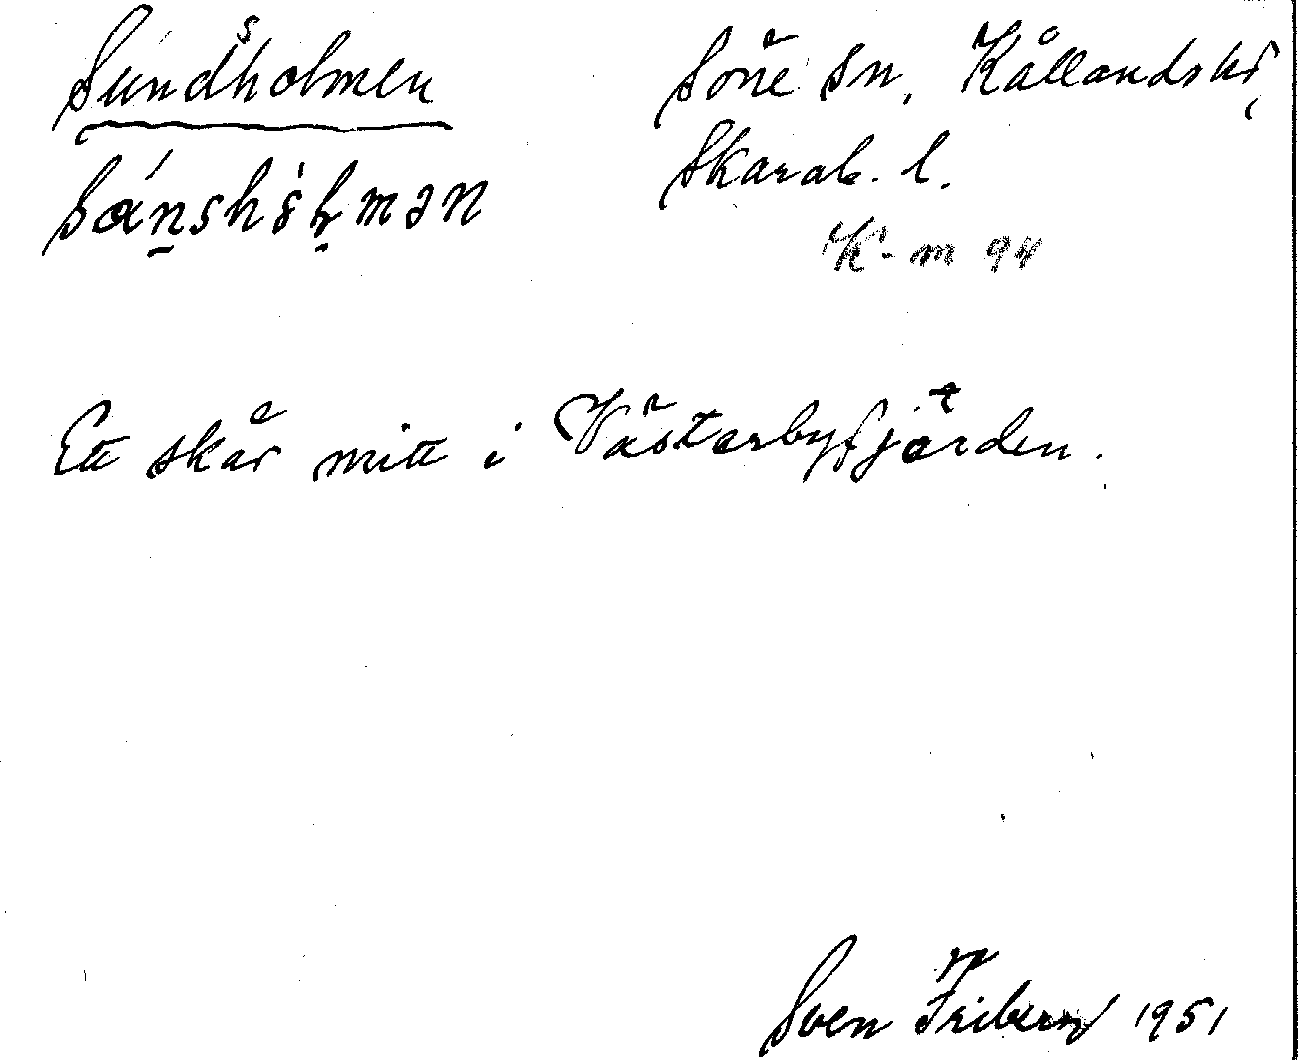 Sundsholmen
Söne sn, Kållands hd,
Skarab. l.
K-m 94
Ett skär mitt i Västerbyfjärden.
Sven Friberg 1951